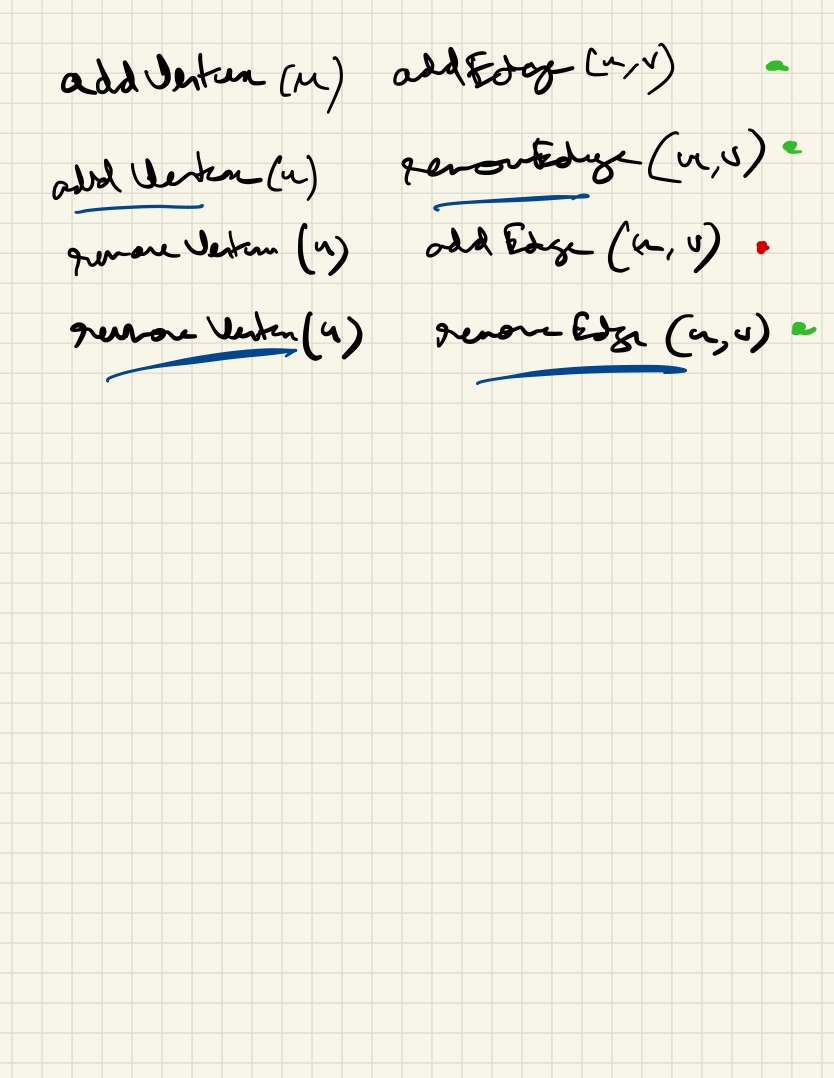 addVertex (u) addEdge (u,v)
add Vertex (u) removeEdge (u,v)
remove Vertex (u) add Edge (u, v)
remove Vertex (u) remove Edge (u,v)